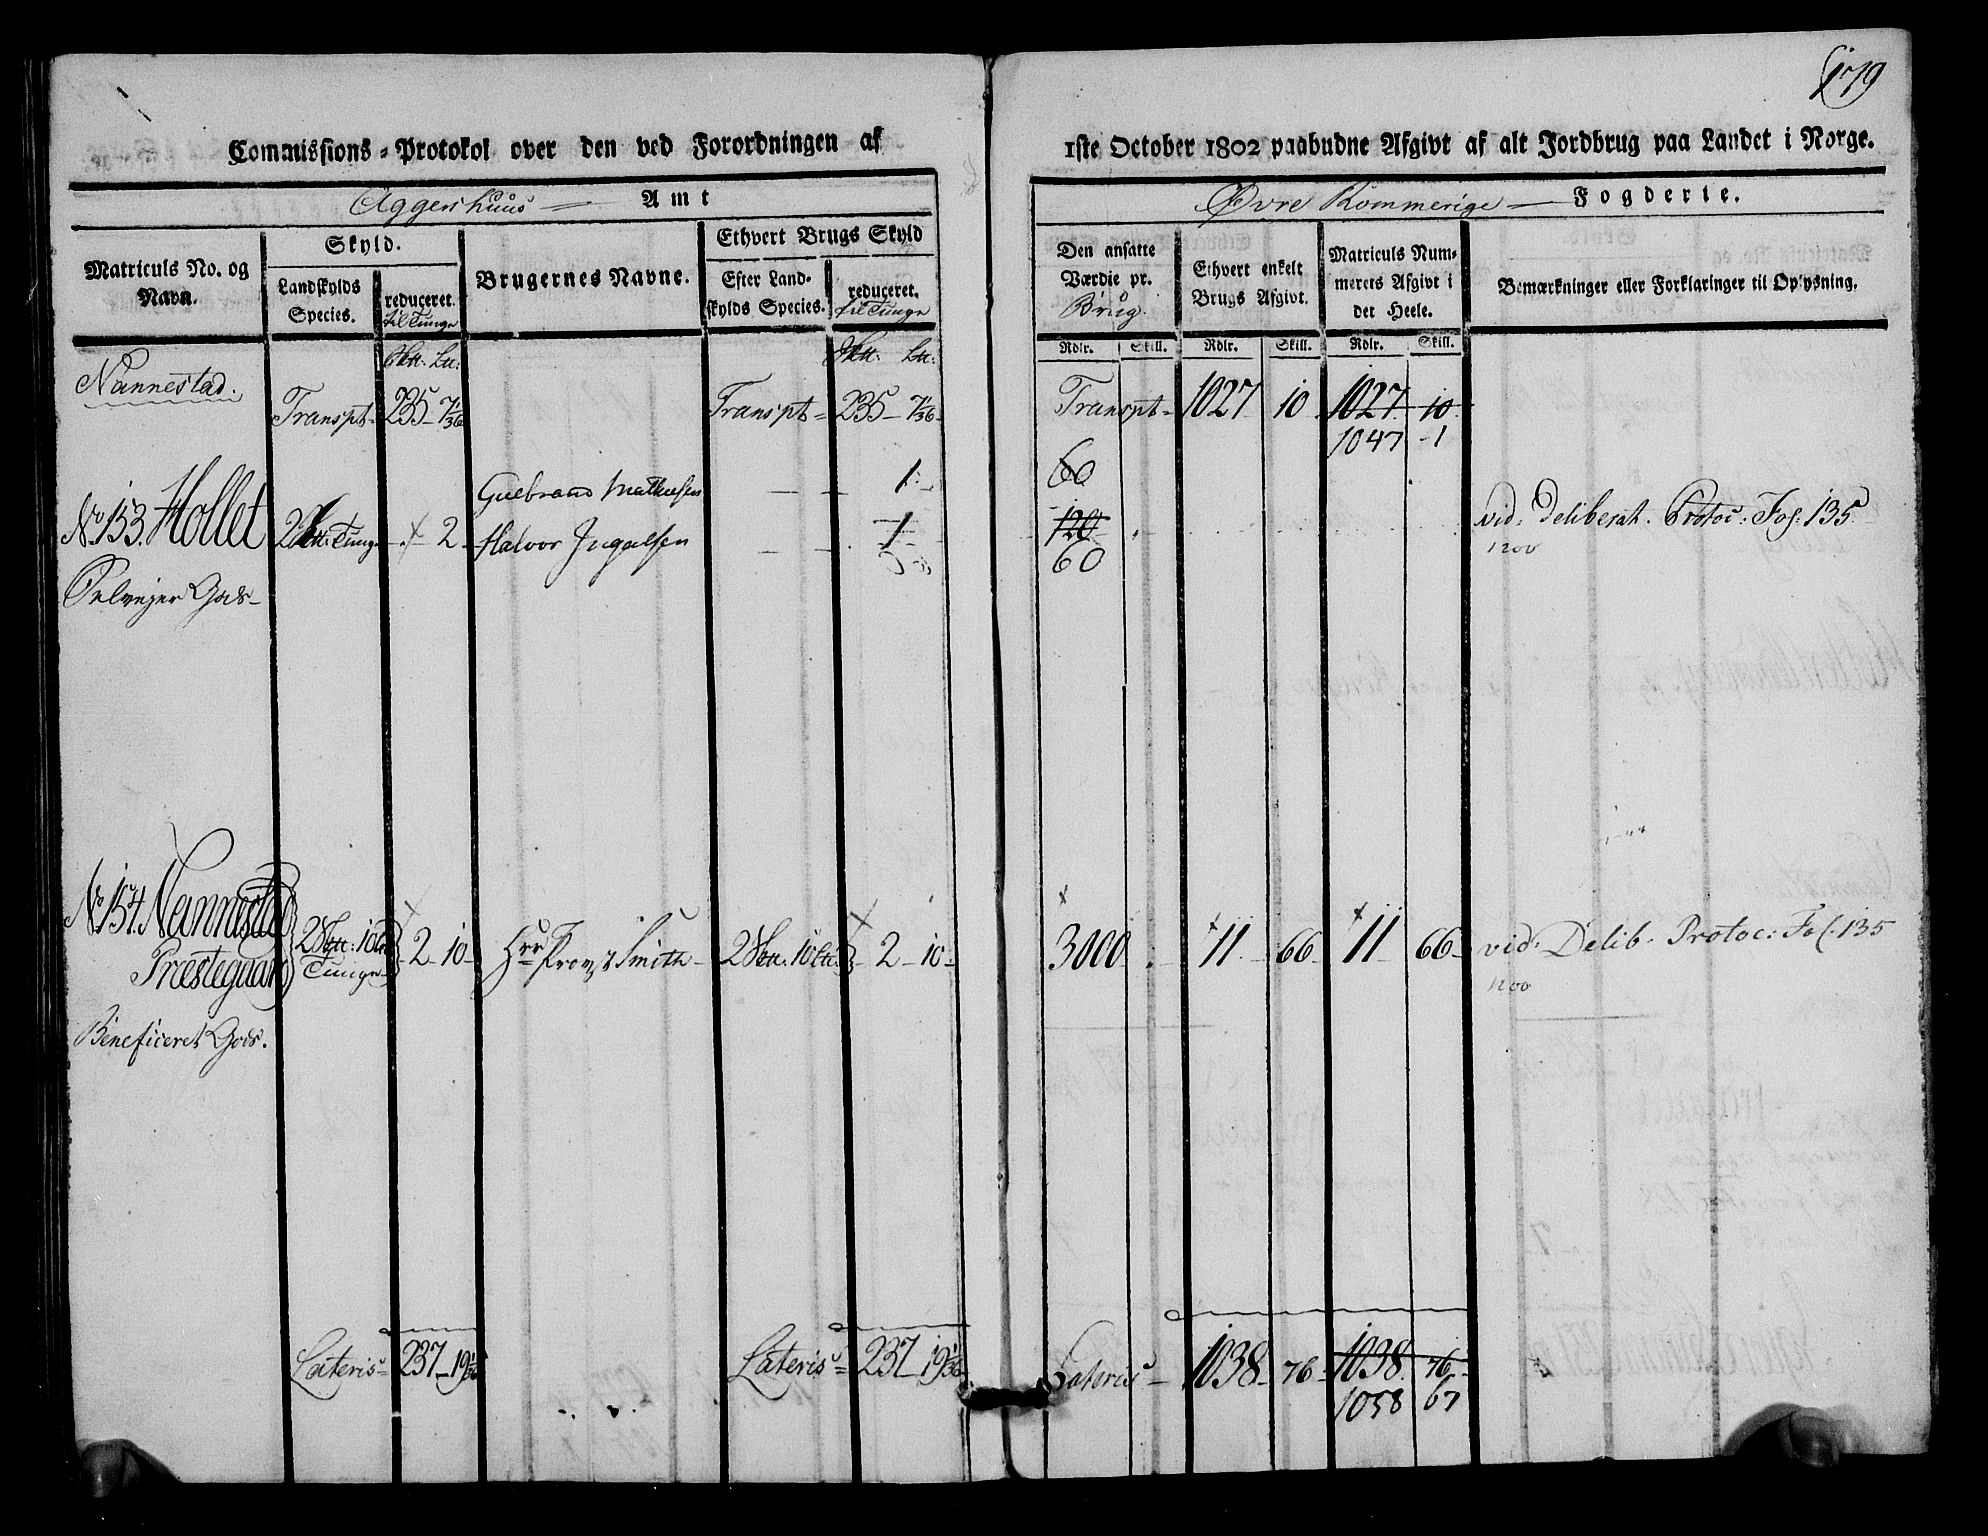 179
Commissions-Protokol over den ved Forordningen af 1ste October 1802 paabudne Afgivt af alt Jordbrug paa Landet i Norge.
Aggershuus Amt
Øvre Rommerige Fogderie.
Matriculs No. og Navn.
Skyld.
Landskylds Species.
reduceret til Tunge
Brugernes Navne.
Ethvert Brugs Skyld
Efter Landskylds Species.
reduceret til Tunge
Den ansatte Værdie pr. Brug.
Ethvert enkelt Brugs Afgivt.
Matriculs Nummerets Afgivt i det Heele.
Bemærkninger eller Forklaringer til Oplysning.
Rdlr. Skill. Rdlr. Skill. Rdlr. Skill.
Nannestad.
Transpt 235 7 1/36
Transpt 235 7 1/36
Transpt 1027 10 1027 10
1047 1
No 153. Hollet
2 Tunge 2
Gulbrand Mathiesen 1
60
Halvor Ingelsen 1
120
60
vid: Deliberat. Protoc: Fol: 135
Selvejer Gods
No 154. Nannestad Præstegaard
2 10 Tunge 2 10
Hrr Provst Smith 2 10 2 10
3000 11 66 11 66
vid: Delib. Protoc: Fol. 135
Beneficeret Gods.
Lateris 237 19 1/36
Lateris 237 19 1/36
Lateris 1038 76 1038 76
1058 67